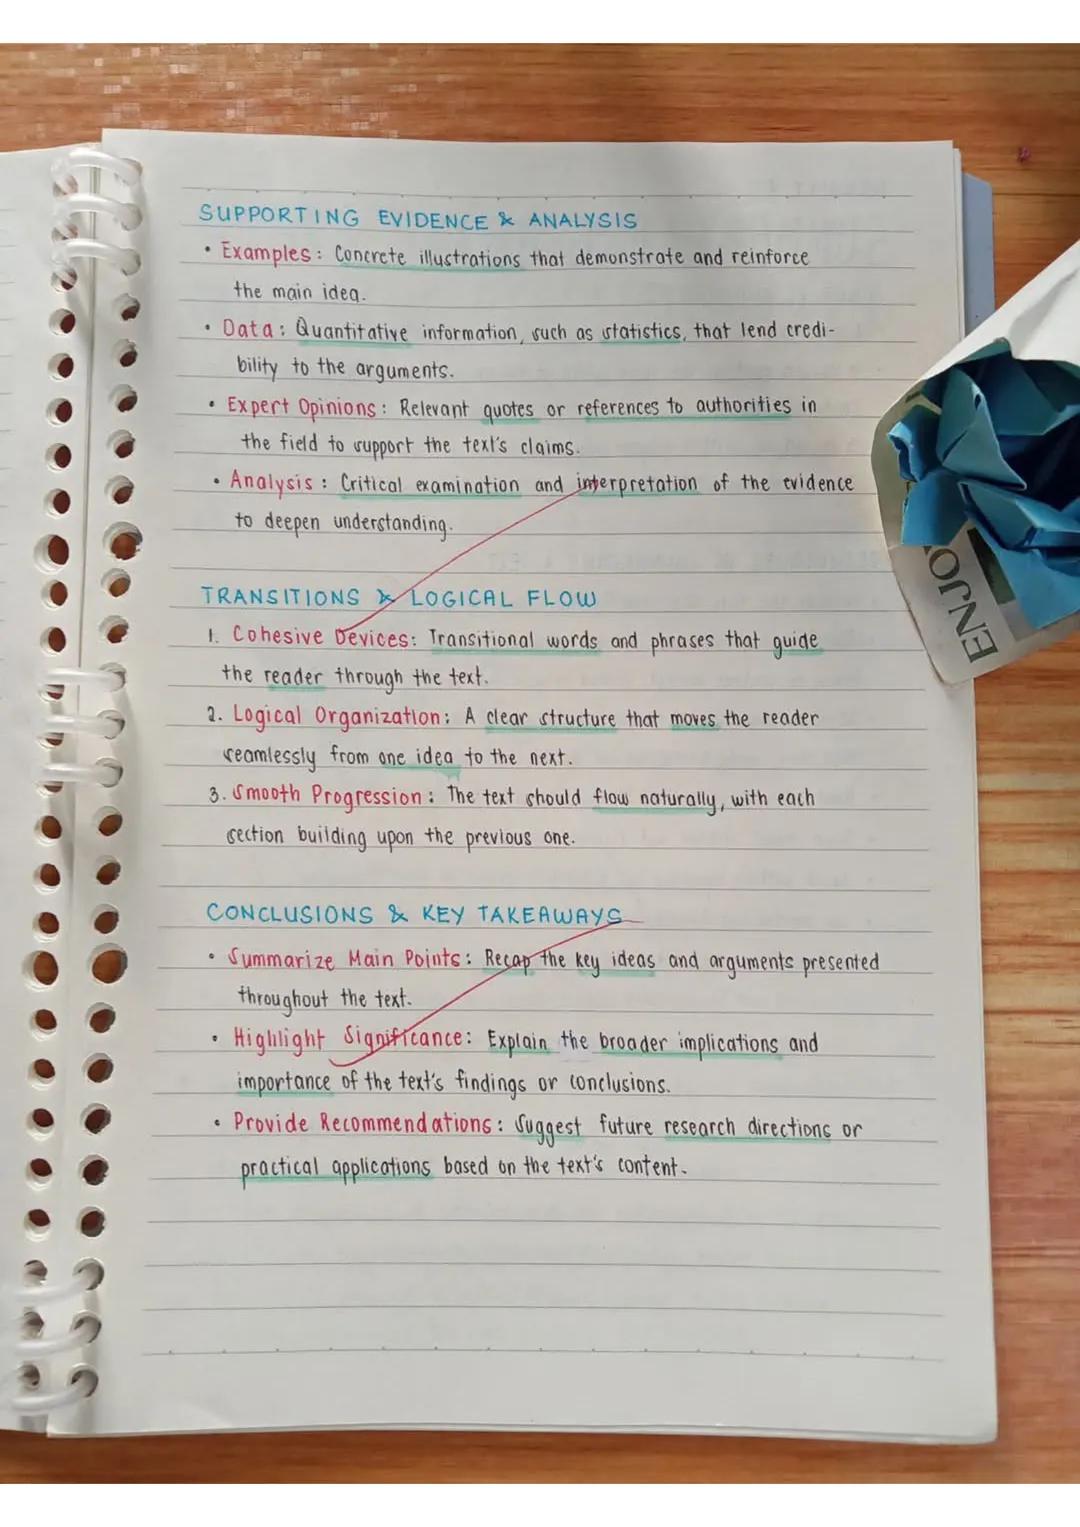 SUPPORTING EVIDENCE & ANALYSIS
• Examples: Concrete illustrations that demonstrate and reinforce
the main idea.
• Data: Quantitative information, such as statistics, that lend credi-
bility to the arguments.
• Expert Opinions: Relevant quotes or references to authorities in
the field to support the text's claims.
• Analysis: Critical examination and interpretation of the evidence
to deepen understanding.
TRANSITIONS & LOGICAL FLOW
1. Cohesive Devices: Transitional words and phrases that guide
the reader through the text.
2. Logical Organization: A clear structure that moves the reader
seamlessly from one idea to the next.
3. Smooth Progression: The text should flow naturally, with each
section building upon the previous one.
CONCLUSIONS & KEY TAKEAWAYS
• Summarize Main Points: Recap the key ideas and arguments presented
throughout the text.
• Highlight Significance: Explain the broader implications and
importance of the text's findings or conclusions.
• Provide Recommendations: Suggest future research directions or
practical applications based on the text's content.
ENJO